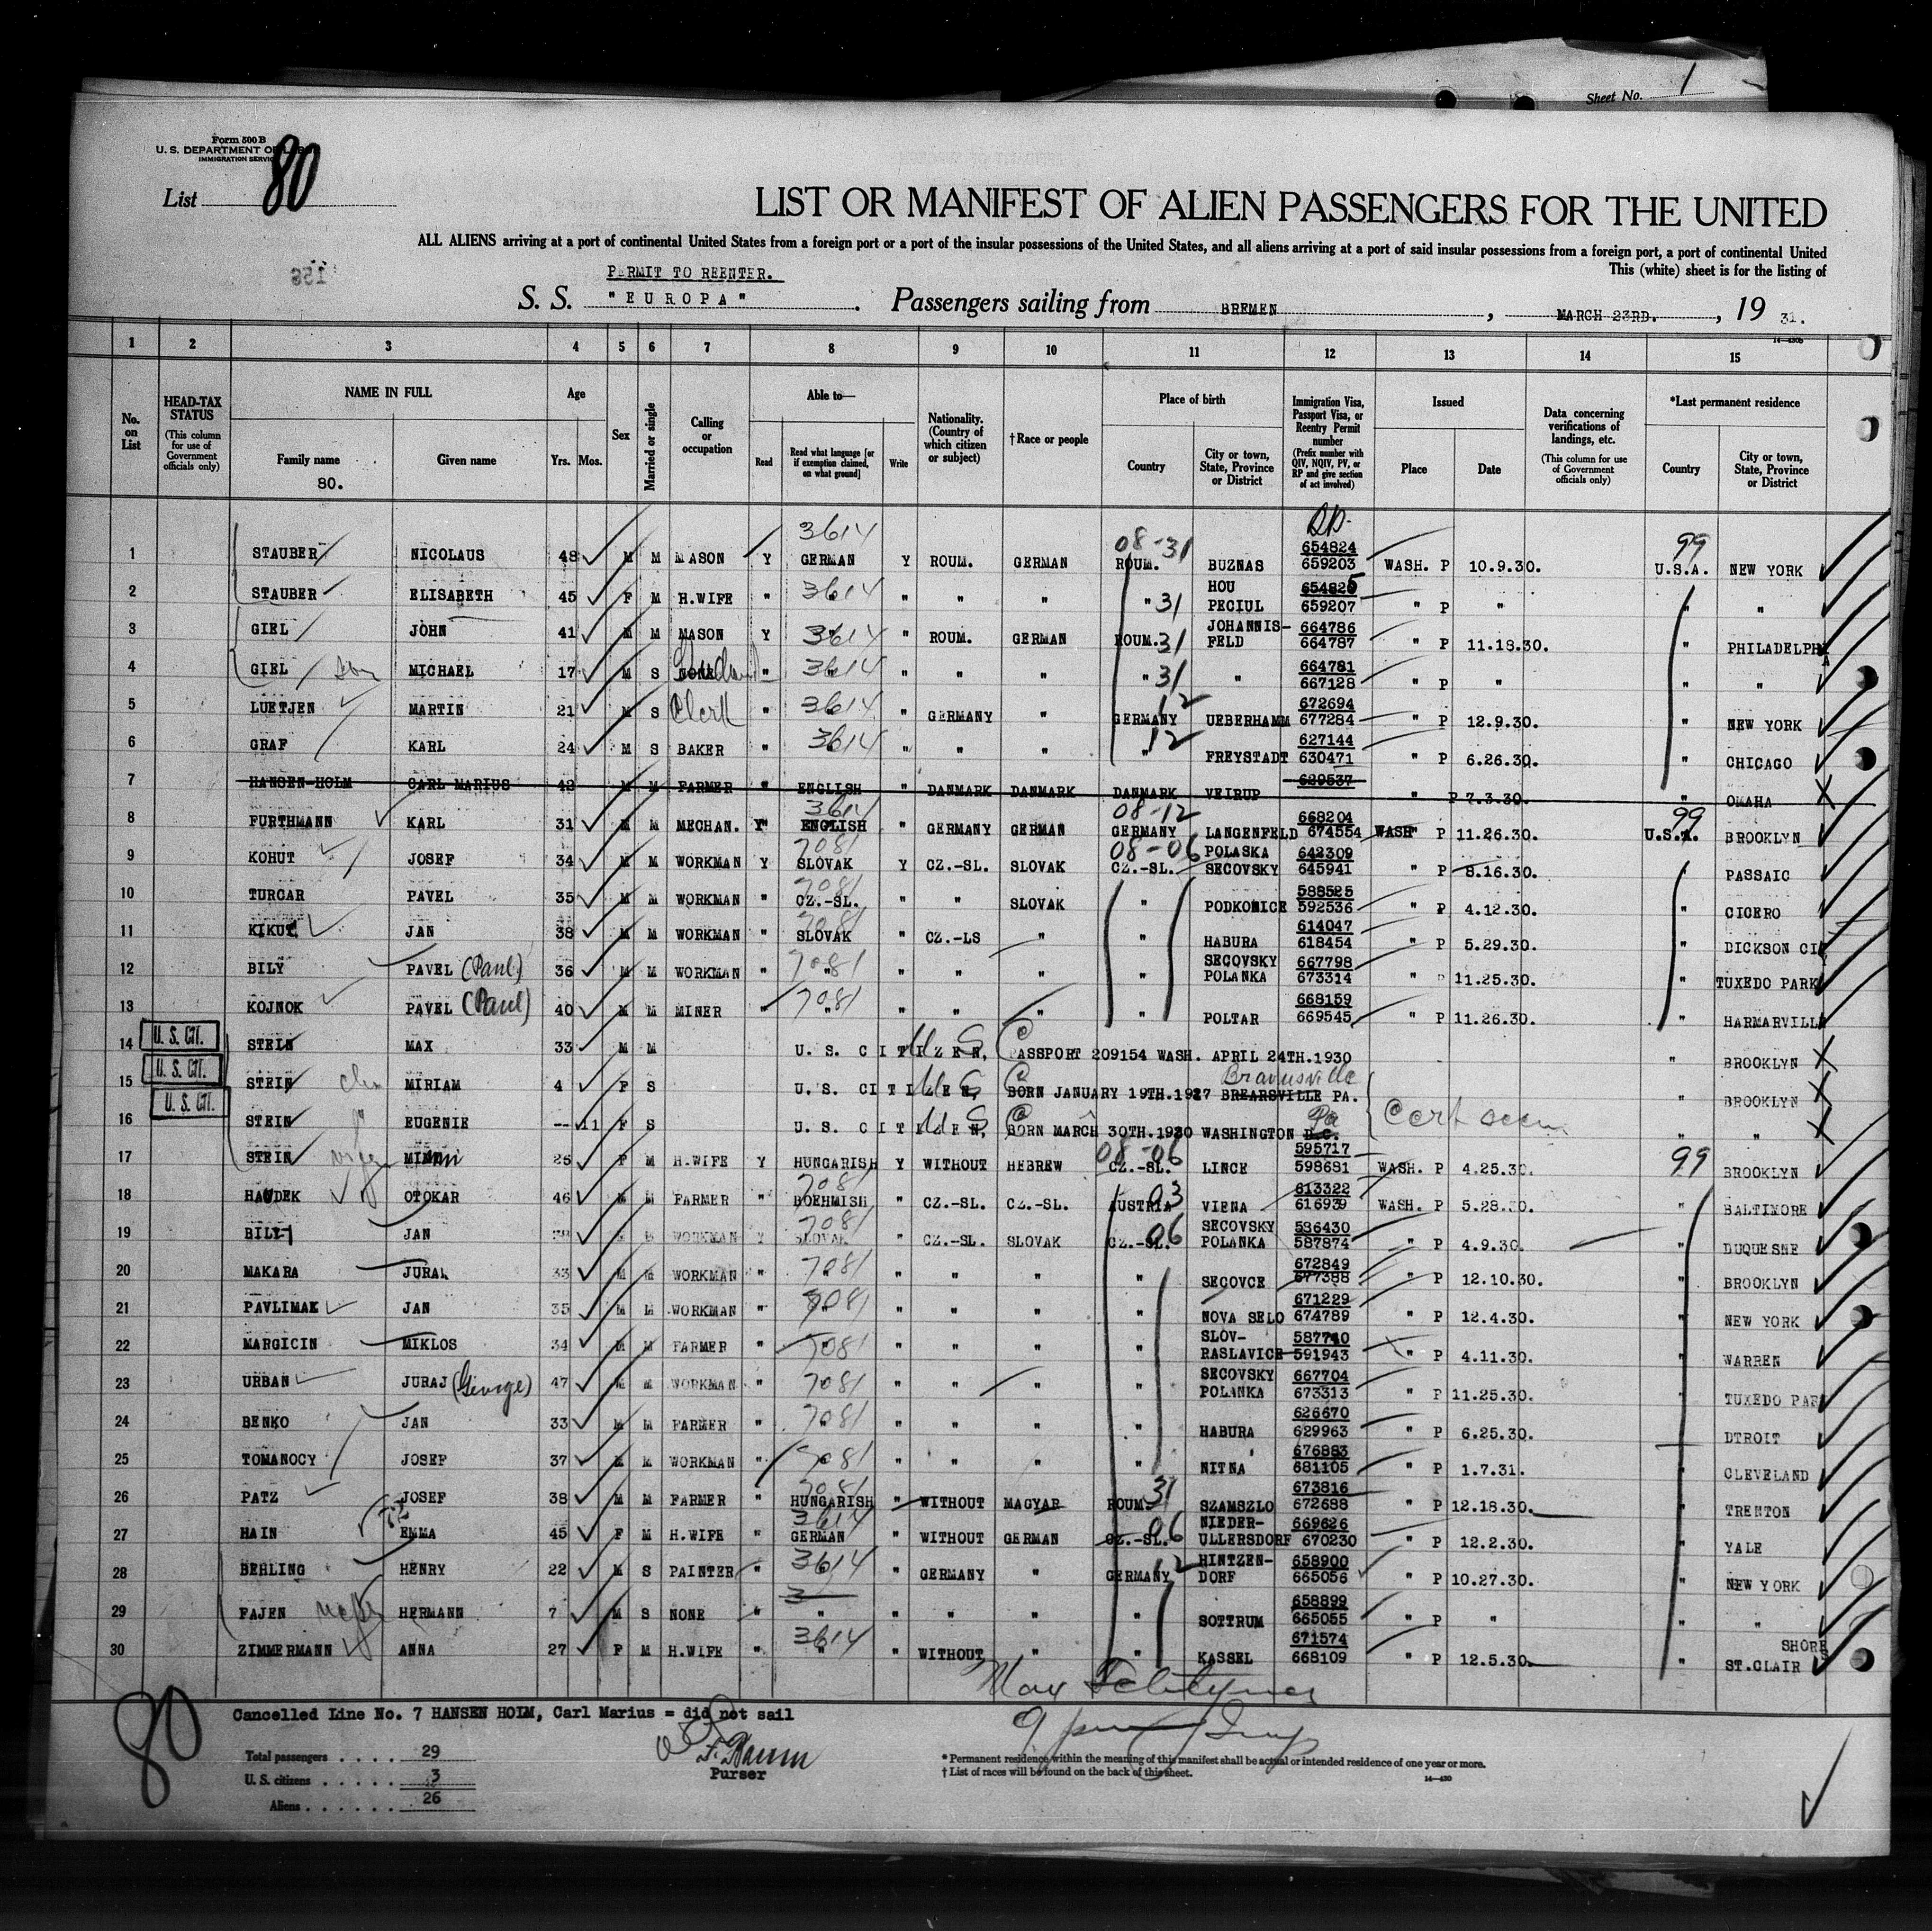 Sheet No. 1
Form 500 B
U. S. DEPARTMENT OF LABOR
IMMIGRATION SERVICE
List 80
LIST OR MANIFEST OF ALIEN PASSENGERS FOR THE UNITED
ALL ALIENS arriving at a port of continental United States from a foreign port or a port of the insular possessions of the United States, and all aliens arriving at a port of said insular possessions from a foreign port, a port of continental United
This (white) sheet is for the listing of
156
PERMIT TO REENTER.
S. S. "EUROPA". Passengers sailing from BREMEN, MARCH 23RD., 19 31.
14—430b
1 2 3 4 5 6 7 8 9 10 11 12 13 14 15
No. on List
HEAD-TAX STATUS (This column for use of Government officials only)
NAME IN FULL
Family name 80.
Given name
Age Yrs. Mos.
Sex
Married or single
Calling or occupation
Able to— Read Read what language [or if exemption claimed, on what ground] Write
Nationality. (Country of which citizen or subject)
†Race or people
Place of birth Country City or town, State, Province or District
Immigration Visa, Passport Visa, or Reentry Permit number (Prefix number with QIV, NQIV, PV, or RP and give section of act involved)
Issued Place Date
Data concerning verifications of landings, etc. (This column for use of Government officials only)
*Last permanent residence Country City or town, State, Province or District
1 STAUBER NICOLAUS 48 M M MASON Y 3614 GERMAN Y ROUM. GERMAN 08-31 ROUM. BUZNAS RP. 654824 659203 WASH. P 10.9.30. 99 U.S.A. NEW YORK
2 STAUBER ELISABETH 45 F M H.WIFE " 3614 " " " " 31 HOU PECIUL 654825 659207 " P " " "
3 GIEL JOHN 41 M M MASON Y 3614 " ROUM. GERMAN ROUM. 31 JOHANNIS-FELD 664786 664787 " P 11.18.30. " PHILADELPHIA
4 GIEL son MICHAEL 17 M S NONE " 3614 " " " " 31 " 664781 667128 " P " " "
5 LUETJEN MARTIN 21 M S Clerk " 3614 " GERMANY " 12 GERMANY UEBERHAMM 672694 677284 " P 12.9.30. " NEW YORK
6 GRAF KARL 24 M S BAKER " 3614 " " " 12 " FREYSTADT 627144 630471 " P 6.26.30. " CHICAGO
7 HANSEN-HOLM CARL MARIUS 42 M M FARMER " ENGLISH " DANMARK DANMARK DANMARK VEIRUP 629537 " P 7.3.30. " OMAHA
8 FURTHMANN KARL 31 M M MECHAN. Y" 3614 ENGLISH " GERMANY GERMAN 08-12 GERMANY LANGENFELD 668204 674554 WASH" P 11.26.30. 99 U.S.A. BROOKLYN
9 KOHUT JOSEF 34 M M WORKMAN Y 7081 SLOVAK Y CZ.-SL. SLOVAK 08-06 CZ.-SL. POLASKA SECOVSKY 642309 645941 " P 8.16.30. " PASSAIC
10 TURCAR PAVEL 35 M M WORKMAN " 7081 CZ.-SL. " " SLOVAK " PODKONICE 588525 592536 " P 4.12.30. " CICERO
11 KIKUT JAN 38 M M WORKMAN " 7081 SLOVAK " CZ.-LS " " HABURA 614047 618454 " P 5.29.30. " DICKSON CITY
12 BILY PAVEL (Paul) 36 M M WORKMAN " 7081 " " " " " SECOVSKY POLANKA 667798 673314 " P 11.25.30. " TUXEDO PARK
13 KOJNOK PAVEL (Paul) 40 M M MINER " 7081 " " " " " POLTAR 668159 669545 " P 11.26.30. " HARMARVILLE
U. S. CIT.
14 STEIN MAX 33 M M U. S. CITIZEN, USC PASSPORT 209154 WASH. APRIL 24TH.1930 " BROOKLYN
U. S. CIT.
15 STEIN MIRIAM 4 F S U. S. CITIZEN, USC BORN JANUARY 19TH.1927 BREARSVILLE PA. " BROOKLYN
U. S. CIT.
16 STEIN " EUGENIE -- 11 F S U. S. CITIZEN, USC BORN MARCH 30TH.1930 WASHINGTON D.C. Pa " "
17 STEIN 26 F M H.WIFE Y HUNGARISH Y WITHOUT HEBREW 08-06 CZ.-SL. LINCE 595717 598681 WASH. P 4.25.30. 99 BROOKLYN
18 HAUDEK OTOKAR 46 M M FARMER " 7081 BOEHMISH " CZ.-SL. CZ.-SL. 03 AUSTRIA VIENA 613322 616939 WASH. P 5.28.30. " BALTIMORE
19 BILY JAN 38 M M WORKMAN Y 7081 SLOVAK " CZ.-SL. SLOVAK 06 CZ.-SL. SECOVSKY POLANKA 586430 587874 " P 4.9.30. " DUQUESNE
20 MAKARA JURAK 33 M M WORKMAN " 7081 " " " " " SECOVCE 672849 677388 " P 12.10.30. " BROOKLYN
21 PAVLIMAK JAN 35 M M WORKMAN " 7081 " " " " " NOVA SELO 671229 674789 " P 12.4.30. " NEW YORK
22 MARGICIN MIKLOS 34 M M FARMER " 7081 " " " " SLOV-RASLAVICE 587740 591943 " P 4.11.30. " WARREN
23 URBAN JURAJ (George) 47 M M WORKMAN " 7081 " " " " SECOVSKY POLANKA 667704 673313 " P 11.25.30. " TUXEDO PARK
24 BENKO JAN 33 M M FARMER " 7081 " " " " " HABURA 626670 629963 " P 6.25.30. " DTROIT
25 TOMANOCY JOSEF 37 M M WORKMAN " 7081 " " " " " NITNA 676883 681105 " P 1.7.31. " CLEVELAND
26 PATZ JOSEF 38 M M FARMER " 7081 HUNGARISH " WITHOUT MAGYAR 31 ROUM. SZAMSZLO 673816 672688 " P 12.18.30. " TRENTON
27 HAIN EMMA 45 F M H.WIFE " 3614 GERMAN " WITHOUT GERMAN 06 CZ.-SL. NIEDER-ULLERSDORF 669626 670230 " P 12.2.30. " YALE
28 BEHLING HENRY 22 M S PAINTER " 3614 " GERMANY " 12 GERMANY HINTZEN-DORF 658900 665056 " P 10.27.30. " NEW YORK
29 FAJEN HERMANN 7 M S NONE " " " " " " SOTTRUM 658899 665055 " P " " "
30 ZIMMERMANN ANNA 27 F M H.WIFE " 3614 " " WITHOUT " " KASSEL 671574 668109 " P 12.5.30. " SHORES ST.CLAIR
80
Cancelled Line No. 7 HANSEN HOLM, Carl Marius = did not sail
Total passengers . . . . 29
U. S. citizens . . . . . 3
Aliens . . . . . . 26
Purser
* Permanent residence within the meaning of this manifest shall be actual or intended residence of one year or more.
† List of races will be found on the back of this sheet.
14—430